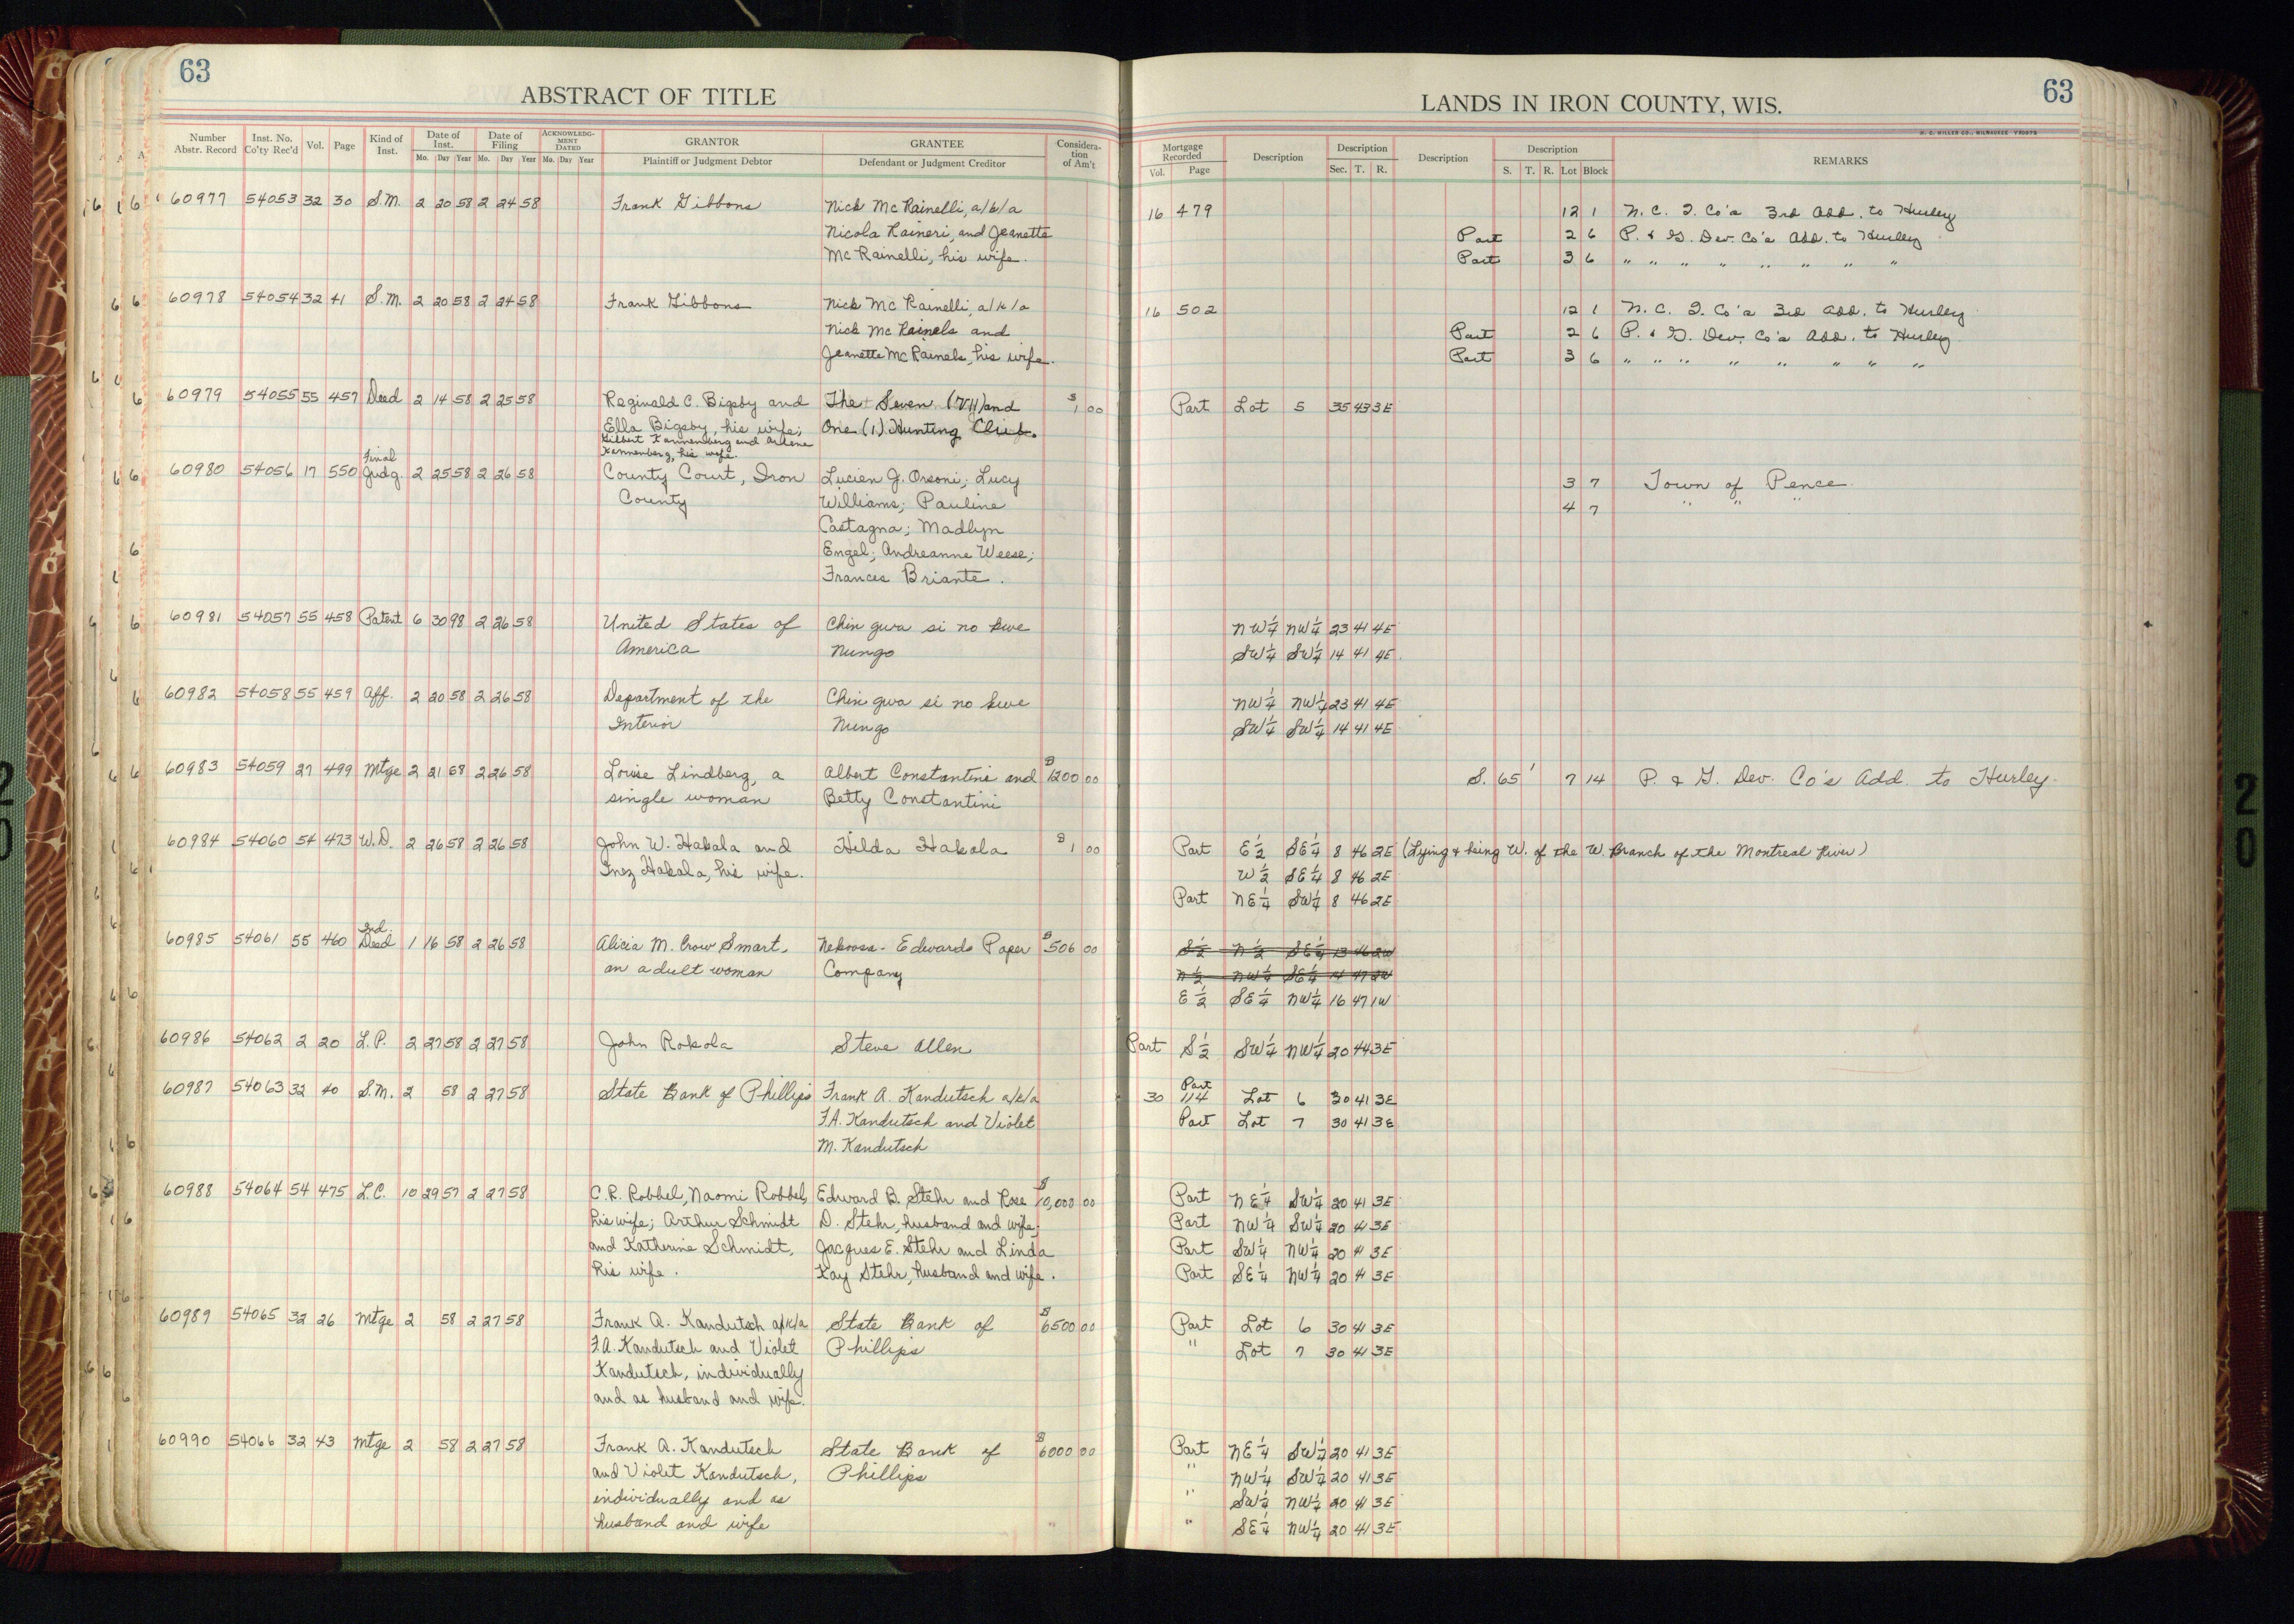 63
ABSTRACT OF TITLE
Number Abstr. Record Inst. No. Co'ty Rec'd Vol. Page Kind of Inst. Date of Inst. Mo. Day Year Date of Filing Mo. Day Year ACKNOWLEDGMENT DATED Mo. Day Year GRANTOR Plaintiff or Judgment Debtor GRANTEE Defendant or Judgment Creditor Consideration of Am't
60977 54053 32 30 S.M. 2 20 58 2 24 58 Frank Gibbons Nick Mc Rainelli, a/k/a
Nicola Raineri, and Jeanette
Mc Rainelli, his wife.
60978 54054 32 41 S.M. 2 20 58 2 24 58 Frank Gibbons Nick Mc Rainelli, a/k/a
Nick Mc Rainels and
Jeanette Mc Rainels, his wife.
60979 54055 55 457 Deed 2 14 58 2 25 58 Reginald C. Bigsby and The Seven (VII) and $1 00
Ella Bigsby, his wife; One (1) Hunting Club.
Gilbert Kannenberg and Arlene
Kannenberg, his wife.
60980 54056 17 550 Final Judg. 2 25 58 2 26 58 County Court, Iron Lucien J. Orsoni; Lucy
County Williams; Pauline
Castagna; Madlyn
Engel; Andreanne Weese;
Frances Briante.
60981 54057 55 458 Patent 6 30 98 2 26 58 United States of Chin gwa si no kwe
America Nungo
60982 54058 55 459 Aff. 2 20 58 2 26 58 Department of the Chin gwa si no kwe
Interior Nungo
60983 54059 27 499 Mtge 2 21 58 2 26 58 Louise Lindberg, a Albert Constantini and $1200 00
single woman Betty Constantini
60984 54060 54 473 W.D. 2 26 58 2 26 58 John W. Hakala and Hilda Hakala $1 00
Inez Hakala, his wife.
60985 54061 55 460 Ind. Deed 1 16 58 2 26 58 Alicia M. Crow Smart, Nekoosa-Edwards Paper $506 00
an adult woman Company
60986 54062 2 20 L.P. 2 27 58 2 27 58 John Rokola Steve Allen
60987 54063 32 40 S.M. 2 58 2 27 58 State Bank of Phillips Frank A. Kandutsch a/k/a
F.A. Kandutsch and Violet
M. Kandutsch
60988 54064 54 475 L.C. 10 29 57 2 27 58 C.R. Robbel, Naomi Robbel, Edward B. Stehr and Rose $10,000 00
his wife; Arthur Schmidt D. Stehr, husband and wife;
and Katherine Schmidt, Jacques E. Stehr and Linda
his wife. Kay Stehr, husband and wife.
60989 54065 32 26 Mtge 2 58 2 27 58 Frank A. Kandutsch a/k/a State Bank of $6500 00
F.A. Kandutsch and Violet Phillips
Kandutsch, individually
and as husband and wife.
60990 54066 32 43 Mtge 2 58 2 27 58 Frank A. Kandutsch State Bank of $6000 00
and Violet Kandutsch, Phillips
individually and as
husband and wife
63
LANDS IN IRON COUNTY, WIS.
H. C. MILLER CO., MILWAUKEE
Mortgage Recorded Vol. Page Description Description Sec. T. R. Description Description S. T. R. Lot Block REMARKS
16 479 12 1 N. C. I. Co's 3rd Add. to Hurley
Part 2 6 P. & G. Dev. Co's Add. to Hurley
Part 3 6 " " " " " " " "
16 502 12 1 N. C. I. Co's 3rd Add. to Hurley
Part 2 6 P. & G. Dev. Co's Add. to Hurley
Part 3 6 " " " " " " " "
Part Lot 5 35 43 3E
3 7 Town of Pence
4 7 " " "
NW¼ NW¼ 23 41 4E
SW¼ SW¼ 14 41 4E
NW¼ NW¼ 23 41 4E
SW¼ SW¼ 14 41 4E
S. 65' 7 14 P. & G. Dev. Co's Add. to Hurley.
Part E½ SE¼ 8 46 2E (Lying & being W. of the W. Branch of the Montreal River)
W½ SE¼ 8 46 2E
Part NE¼ SW¼ 8 46 2E
S½ N½ SE¼ 13 46 2W
N½ NW¼ SE¼ 14 47 2W
E½ SE¼ NW¼ 16 47 1W
Part S½ SW¼ NW¼ 20 44 3E
30 Part 114 Lot 6 30 41 3E
Part Lot 7 30 41 3E
Part NE¼ SW¼ 20 41 3E
Part NW¼ SW¼ 20 41 3E
Part SW¼ NW¼ 20 41 3E
Part SE¼ NW¼ 20 41 3E
Part Lot 6 30 41 3E
" Lot 7 30 41 3E
Part NE¼ SW¼ 20 41 3E
" NW¼ SW¼ 20 41 3E
" SW¼ NW¼ 20 41 3E
" SE¼ NW¼ 20 41 3E
20